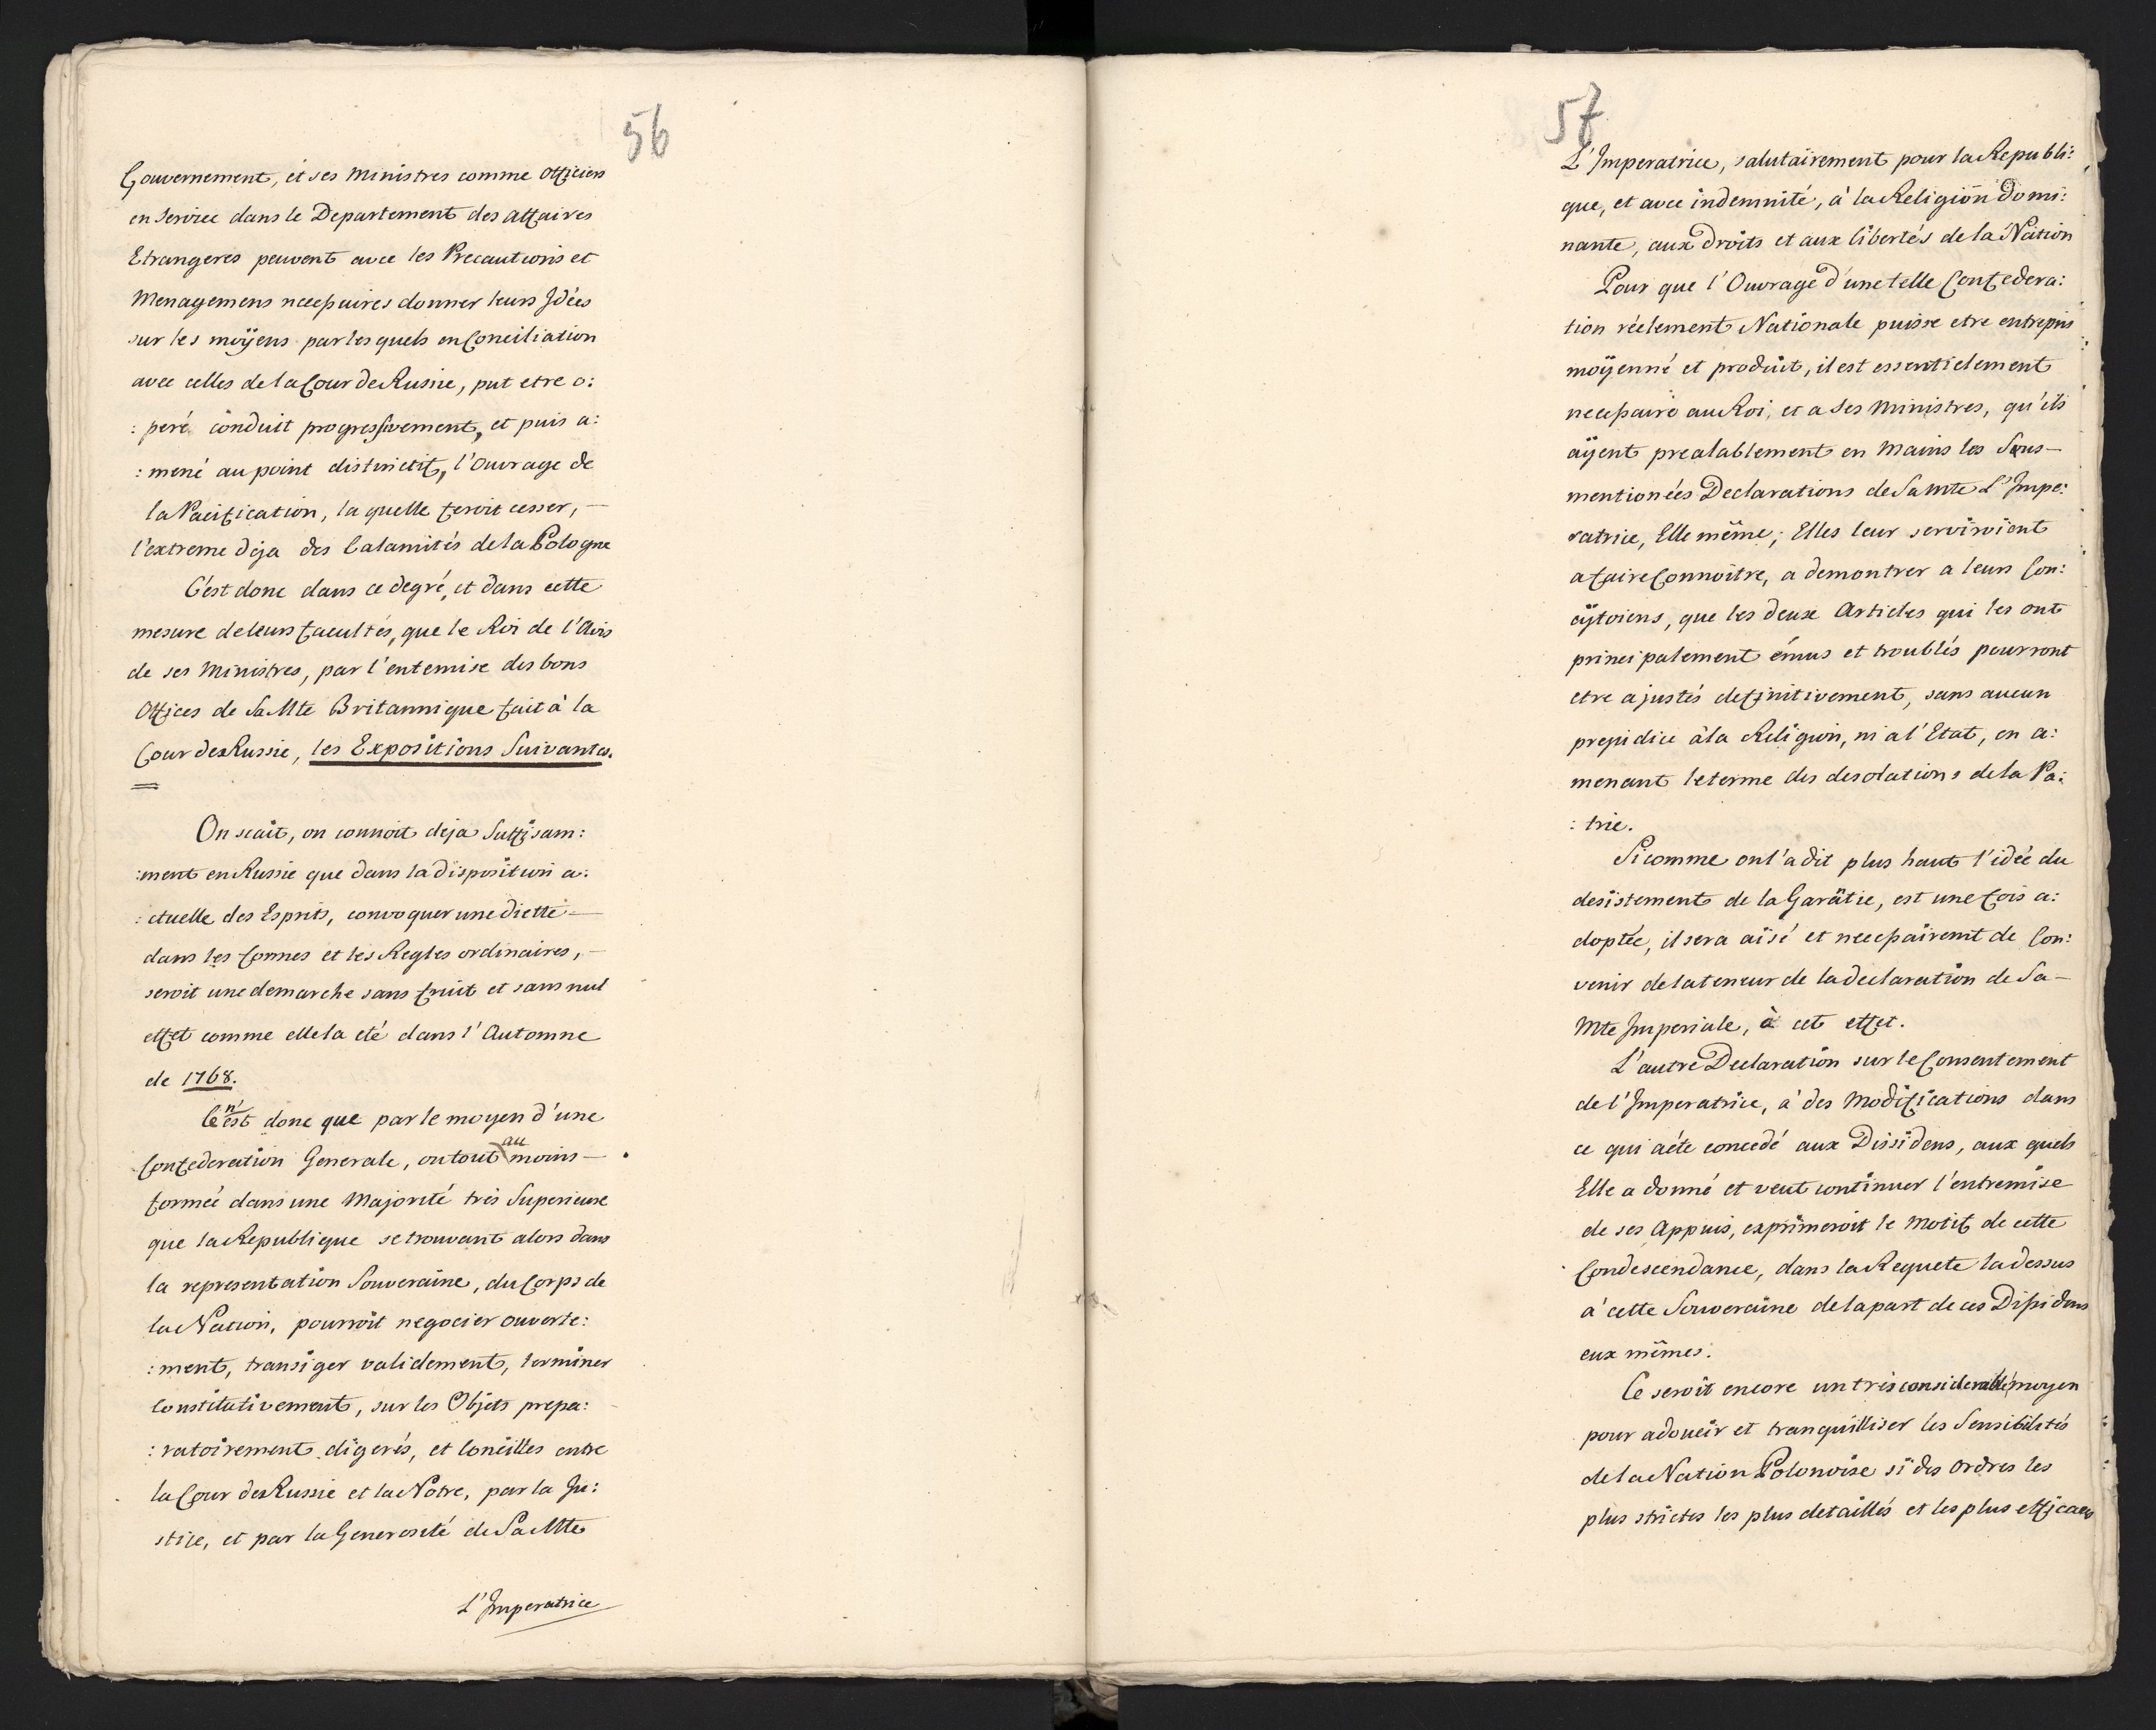 56
Gouvernement, et ses Ministres comme Officiers
en Service dans le Departement des affaires
Etrangeres peuvent avec les Precautions et
Menagemens necessaires donner leurs Idées
sur les moÿens par les quels en Conciliation
avec celles de la Cour de Russie, put etre o:
: peré conduit progressivement, et puis a:
: mené au point distinctif, l'Ouvrage de
la Pacification, la quelle feroit cesser, —
l'extreme deja des Calamités de la Pologne
C'est donc dans ce degré, et dans cette
mesure de leurs facultés, que le Roi de l'Avis
de ses Ministres, par l'entemise des bons
Offices de Sa Mte Britannique fait à la
Cour de Russie, les Expositions Suivantes.
On scait, on connoit deja Suffisam:
:ment en Russie que dans la disposition a:
: ctuelle des Esprits, convoquer une diette —
dans les formes et les Regles ordinaires, —
seroit une demarche sans fruit et sans nul
effet comme elle la eté dans l'Automne
de 1768.
Ce n'est donc que par le moyen d'une
Confederation Generale, ou tout au moins —
formée dans une Majorité très Superieure
que la Republique se trouvant alors dans
la representation Souveraine, du Corps de
la Nation, pourroit negocier ouverte:
:ment, transiger validement, terminer
Constitutivement, sur les Objets prepa:
: ratoirement digerés, et Conciliés entre
la Cour de Russie et la Notre, par la Ju:
stice, et par la Generosité de Sa Mte
L'Imperatrice
57
L'Imperatrice, salutairement pour la Republi:
que, et avec indemnité, à la Religion domi:
nante, aux droits et aux libertés de la Nation
Pour que l'Ouvrage d'une telle Confedera:
tion réelement Nationale puisse etre entrepris
moÿenné et produit, il est essentielement
necessaire au Roi, et a Ses Ministres, qu'ils
aÿent prealablement en Mains les Sous—
mentionées Declarations de Sa Mte L'Impe:
ratrice, Elle même; Elles leur serviroient
a faire Connoitre, a demontrer a leurs Con:
çytoiens, que les deux Articles qui les ont
principalement émus et troublés pourront
etre ajustés definitivement, sans aucun
prejudice à la Religion, ni a l'Etat, en a:
menant le terme des desolations de la Pa:
: trie.
Si comme on l'a dit plus haut l'idée du
desistement de la Garãtie, est une fois a:
doptée, il sera aisé et necessairemt de Con:
venir de la teneur de la declaration de Sa—
Mte Imperiale, à cet effet.
L'autre Declaration sur le Consentement
de l'Imperatrice, a des Modifications dans
ce qui a été concedé aux Dissidens, aux quels
Elle a donné et veut continuer l'entremise
de ses Appuis, exprimeroit le Motif de cette
Condescendance, dans la Requete la dessus
a cette Souveraine de la part de ces Dissidens
eux mêmes.
Ce seroit encore un tres considerable moyen
pour adoucir et tranquilliser les Sensibilités
de la Nation Polonoise si des Ordres les
plus strictes les plus detaillés et les plus efficaces